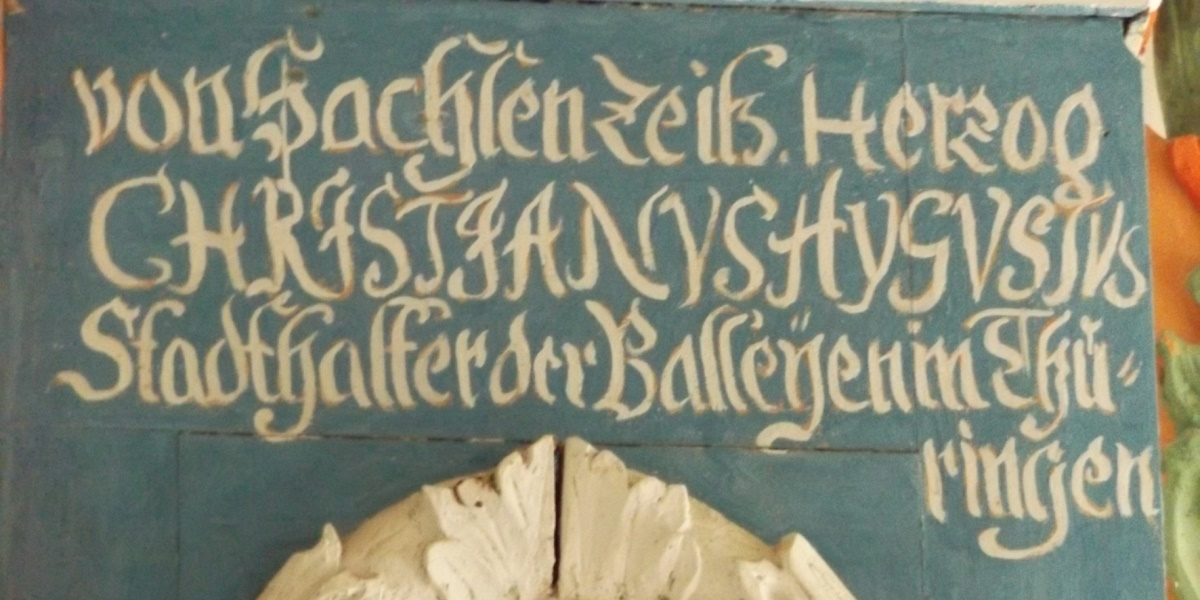 von Sachsen Zeitz. Herzog
CHRISTIANVS AVGVSTVS
Stadthalter der Balleÿen im Thü-
ringen